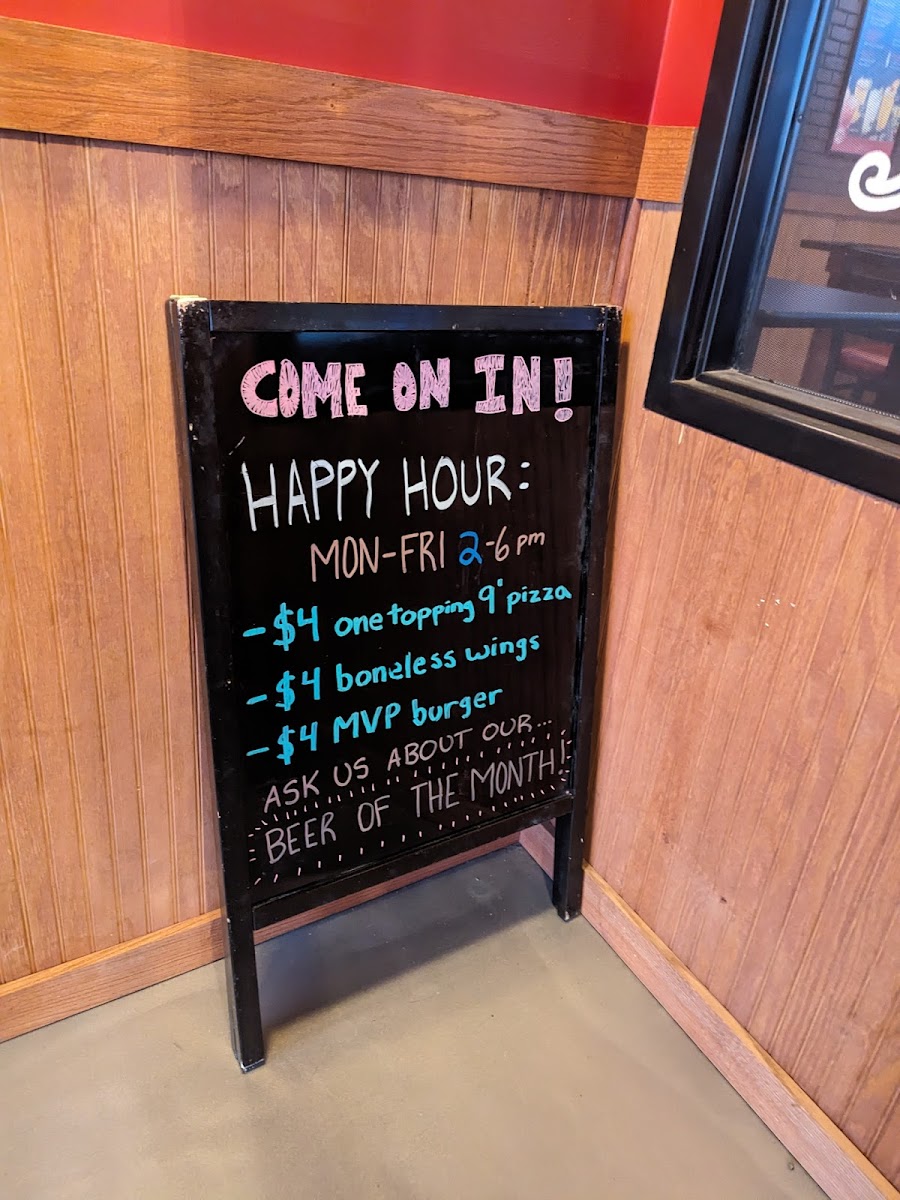 COME ON IN!
HAPPY HOUR:
MON-FRI 2-6 pm
-$4 one topping 9" pizza
-$4 boneless wings
-$4 MVP burger
ASK US ABOUT OUR...
BEER OF THE MONTH!